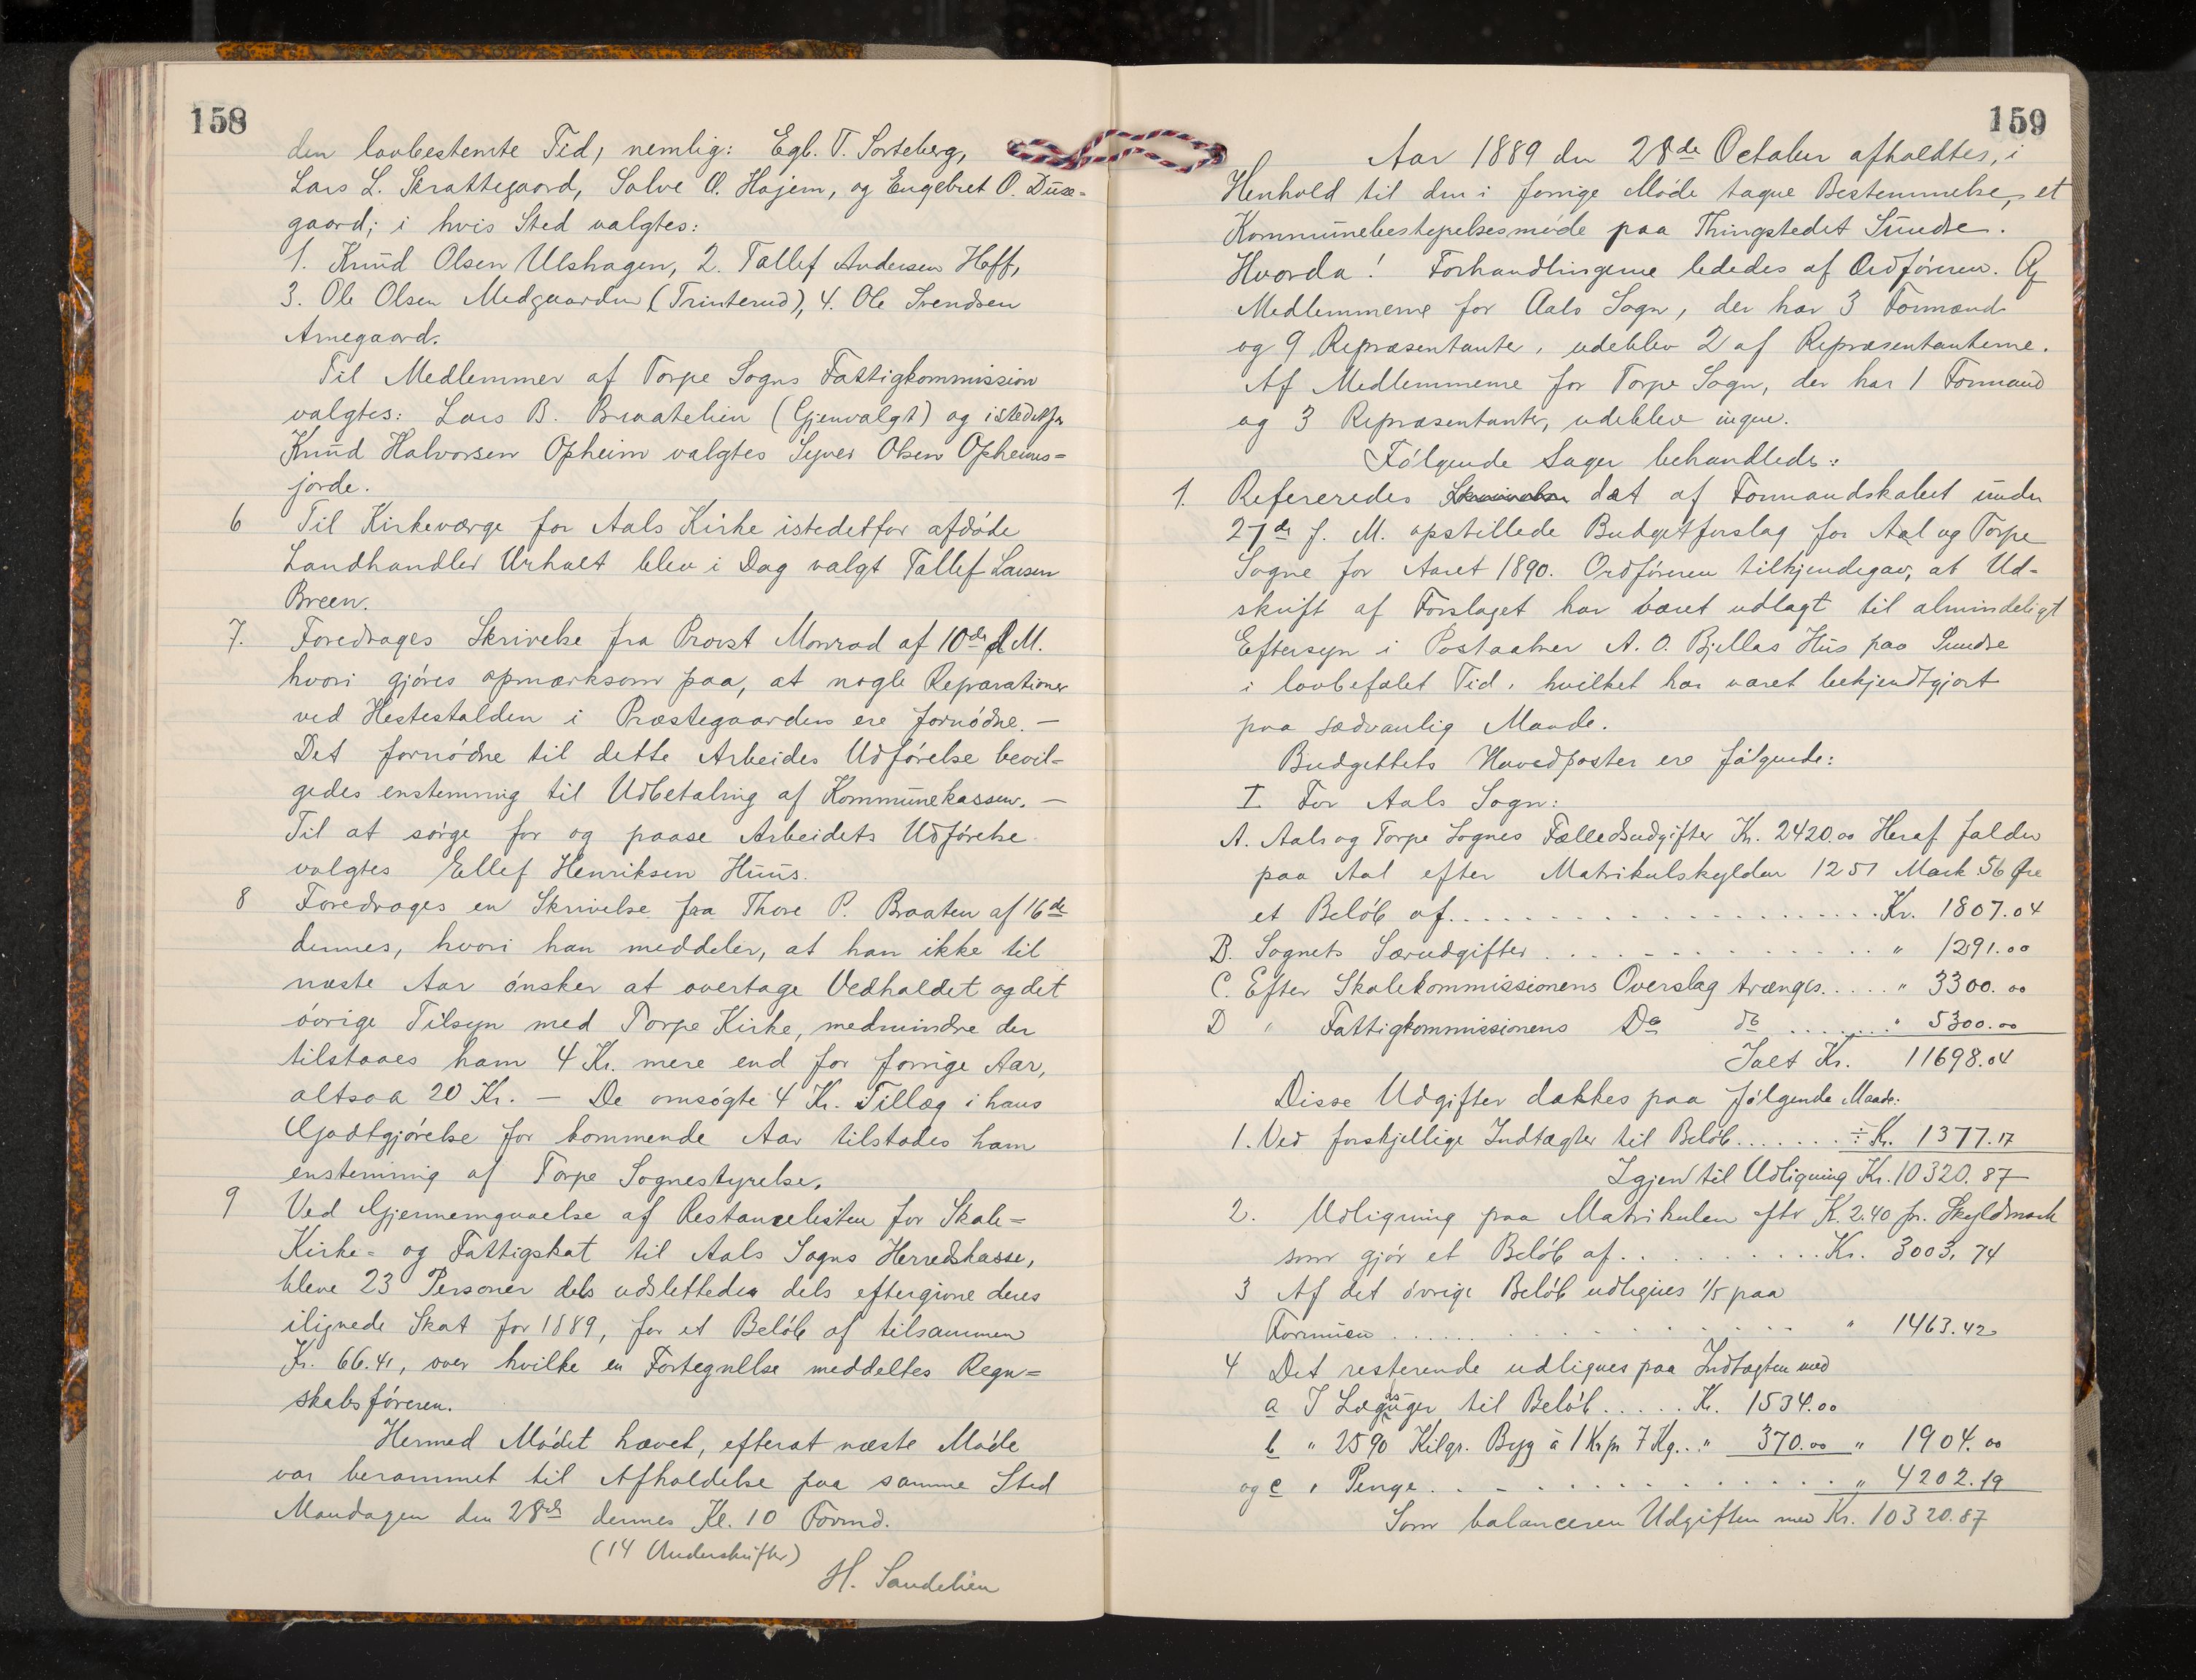 158
den lovbestemte Tid, nemlig: Egb. T. Sorteberg,
Lars L. Skrattegaard, Salve O. Hajem, og Engebret O. Duse-
gaard; i hvis Sted valgtes:
1. Knud Olsen Ulshagen, 2. Tallef Andersen Hoff,
3. Ole Olsen Medgaarden (Trinterud), 4. Ole Svendsen
Arnegaard.
Til Medlemmer af Torpe Sogns Fattigkommission
valgtes: Lars B. Braatelien (Gjenvalgt) og istedetfor
Knud Halvorsen Opheim valgtes Syver Olsen Opheims-
jorde.
6 Til Kirkeværge for Aals Kirke istedetfor afdøde
Landhandler Urholt blev i Dag valgt Tallef Larsen
Breen.
7. Foredrages Skrivelse fra Provst Monrad af 10de d. M.
hvori gjøres opmærksom paa, at nogle Reparationer
ved Hestestalden i Præstegaarden ere fornødne. —
Det fornødne til dette Arbeides Udførelse bevil-
gedes enstemmig til Udbetaling af Kommunekassen. —
Til at sørge for og paase Arbeidets Udførelse
valgtes Ellef Henriksen Huus.
8 Foredrages en Skrivelse fra Thore P. Braaten af 16de
dennes, hvori han meddeler, at han ikke til
næste Aar ønsker at overtage Vedholdet og det
øvrige Tilsyn med Torpe Kirke, medmindre der
tilstaaes ham 4 Kr. mere end for forrige Aar,
altsaa 20 Kr. — De omsøgte 4 Kr. Tillæg i hans
Godtgjørelse for kommende Aar tilstodes ham
enstemmig af Torpe Sognestyrelse.
9 Ved Gjennemgaaelse af Restancelisten for Skole-
Kirke- og Fattigskat til Aals Sogns Herredskasse,
bleve 23 Personer dels udslettede dels eftergivne deres
ilignede Skat for 1889, for et Beløb af tilsammen
Kr. 66.41, over hvilke en Fortegnelse meddeltes Regn-
skabsføreren.
Hermed Mødet hævet, efterat næste Møde
var berammet til Afholdelse paa samme Sted
Mandagen den 28de dennes Kl. 10 Formd.
(14 Underskrifter)
H. Sandelien
159
Aar 1889 den 28de October afholdtes, i
Henhold til den i forrige Møde tagne Bestemmelse, et
Kommunebestyrelsesmøde paa Thingstedet Sundre.
Hvorda! Forhandlingerne lededes af Ordføreren. Af
Medlemmerne for Aals Sogn, der har 3 Formænd
og 9 Repræsentanter, udeblev 2 af Repræsentanterne.
Af Medlemmerne for Torpe Sogn, der har 1 Formand
og 3 Repræsentanter, udeblev ingen.
Følgende Sager behandledes:
1. Refereredes det af Formandskabet under
27de f. M. opstillede Budgetforslag for Aal og Torpe
Sogne for Aaret 1890. Ordføreren tilkjendegav, at Ud-
skrift af Forslaget har været udlagt til almindeligt
Eftersyn i Postaabner A. O. Bjellas Hus paa Sundre
i lovbefalet Tid, hvilket har været bekjendtgjort
paa sædvanlig Maade.
Budgettets Hovedposter ere følgende:
I For Aals Sogn:
A. Aals og Torpe Sognes Fælledsudgifter Kr. 2420.00 Heraf falder
paa Aal efter Matrikulskylden 1251 Mark 56 Øre
et Beløb af..........Kr. 1807.04
B. Sognets Særudgifter.......... " 1291.00
C. Efter Skolekommissionens Overslag trænges..... " 3300.00
D " Fattigkommissionens Do do ........ " 5300.00
Ialt Kr. 11698.04
Disse Udgifter dækkes paa følgende Maade:
1. Ved forskjellige Indtægter til Beløb....... ÷ Kr. 1377.17
Igjen til Udligning Kr. 10320.87
2. Udligning paa Matrikulen efter K. 2.40 pr. Skyldmark
som gjør et Beløb af..........Kr. 3003.74
3 Af det øvrige Beløb udlignes 1/5 paa
Formuen.......... " 1463.42
4 Det resterende udlignes paa Indtægten med
a I Lægdsuger til Beløb..... Kr. 1534.00
b " 2590 Kilgr. Byg à 1 Kr pr 7 Kg... " 370.00 " 1904.00
og c " Penge.......... " 4202.19
Som balancerer Udgiften med Kr. 10320.87